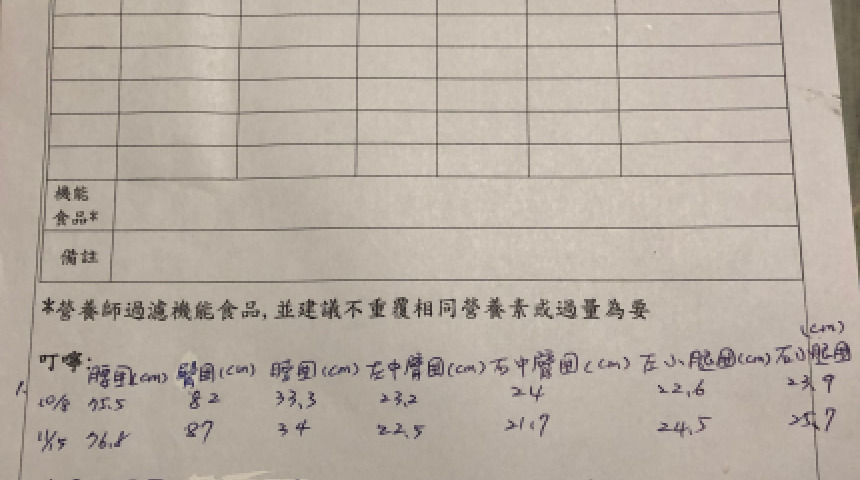 機能
食品*
備註
*營養師過濾機能食品,並建議不重覆相同營養素或過量為要
叮嚀:
腰圍(cm) 臀圍(cm) 腰圍(cm) 左中臂圍(cm) 右中臂圍(cm) 左小腿圍(cm) 右小腿圍(cm)
10/8 75.5 82 33.3 23.2 24 22.6 23.9
11/5 76.8 87 34 22.5 21.7 24.5 25.7